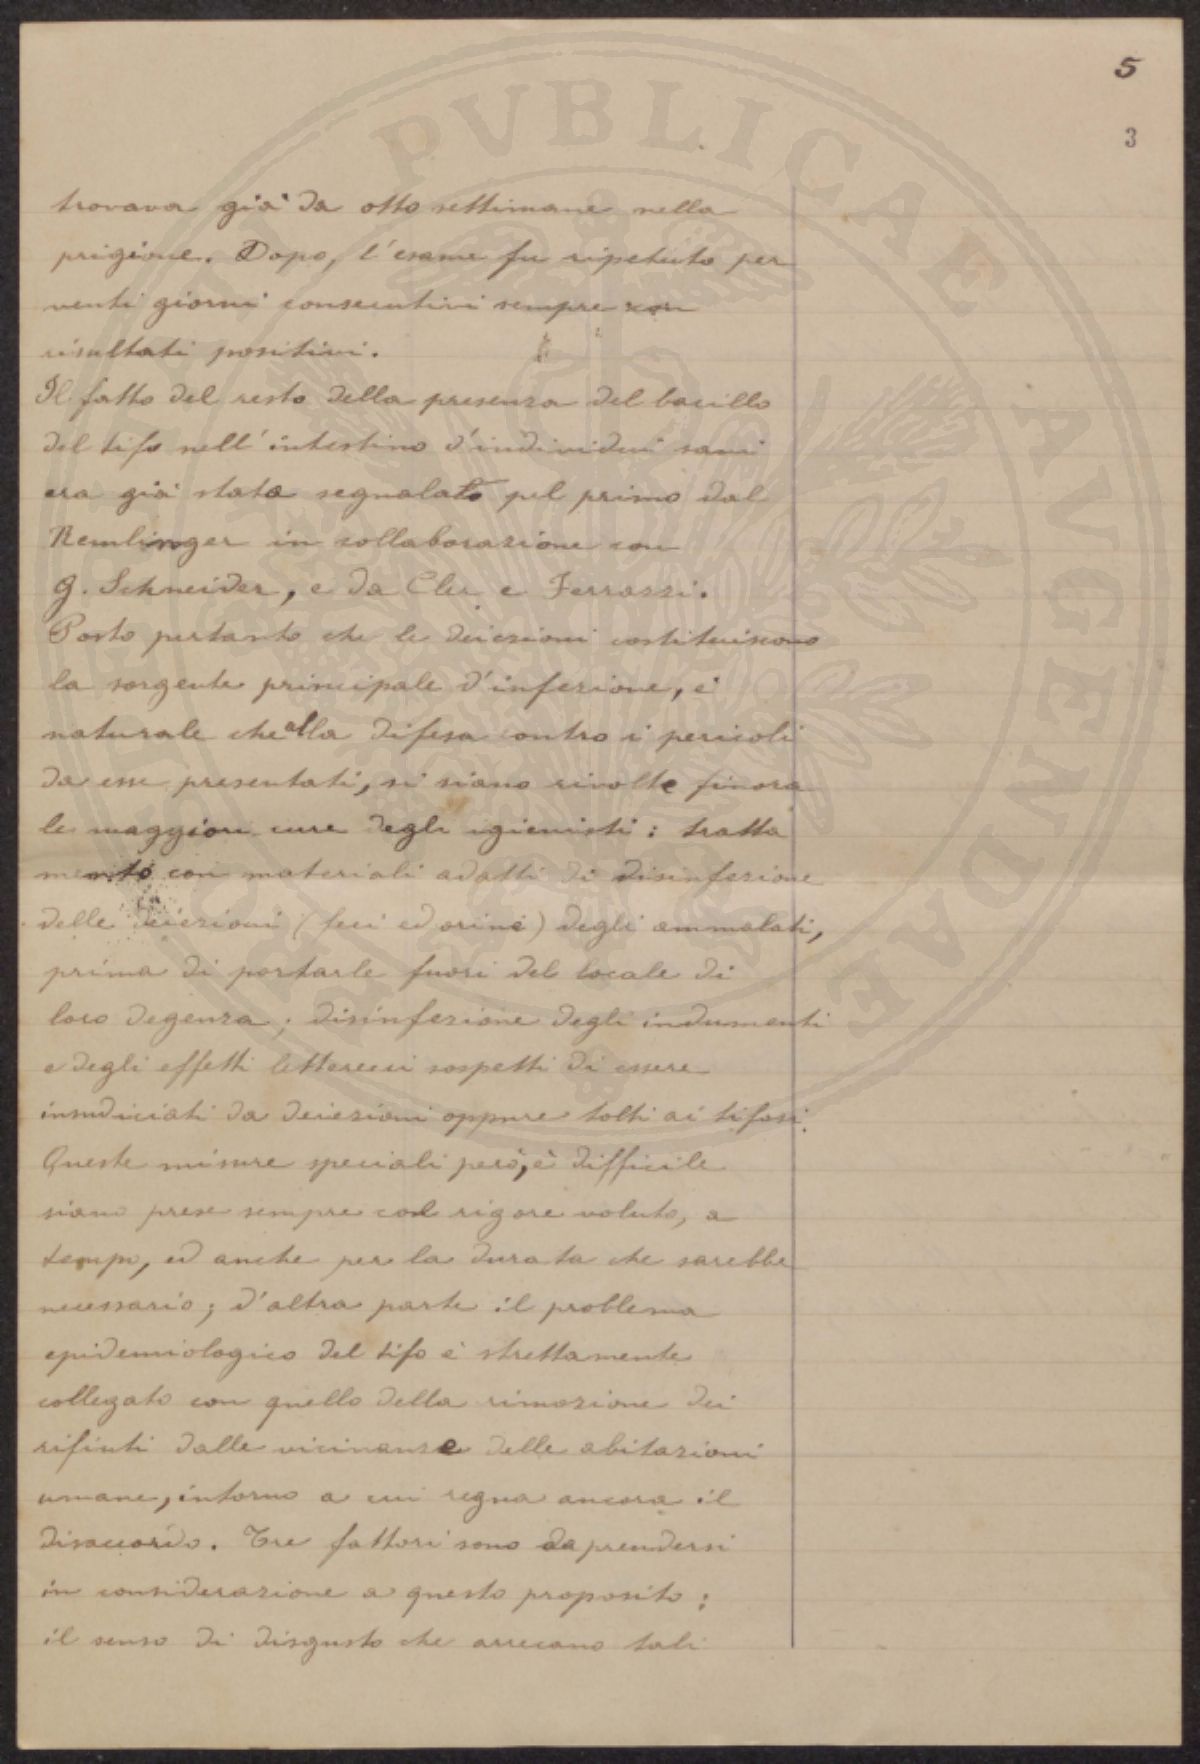 5
3
PVBLICAE AVGENDAE
trovava già da otto settimane nella
prigione. Dopo, l'esame fu ripetuto per
venti giorni consecutivi sempre con
risultati positivi.
Il fatto del resto della presenza del bacillo
del tifo nell'intestino d'individui sani
era già stato segnalato pel primo dal
Remlinger in collaborazione con
G. Schneider, e da Cler e Ferrazzi.
Posto pertanto che le deiezioni costituiscono
la sorgente principale d'infezione, è
naturale che alla difesa contro i pericoli
da esse presentati, si siano rivolte finora
le maggiori cure degli igienisti: tratta
mento con materiali adatti di disinfezione
delle deiezioni (feci ed orine) degli ammalati,
prima di portarle fuori del locale di
loro degenza; disinfezione degli indumenti
e degli effetti letterecci sospetti di essere
insudiciati da deiezioni oppure tolti ai tifosi.
Queste misure speciali però, è difficile
siano prese sempre col rigore voluto, a
tempo, ed anche per la durata che sarebbe
necessario; d'altra parte il problema
epidemiologico del tifo è strettamente
collegato con quello della rimozione dei
rifiuti dalle vicinanze delle abitazioni
umane, intorno a cui regna ancora il
disaccordo. Tre fattori sono da prendersi
in considerazione a questo proposito:
il senso di disgusto che arrecano tali